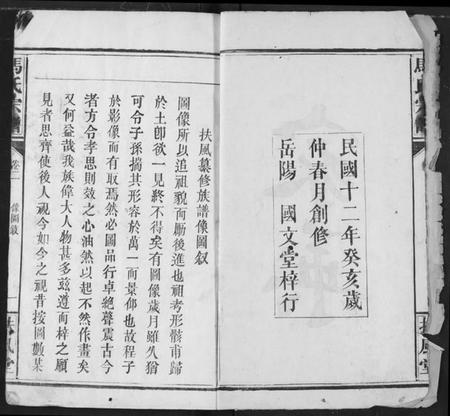 民國十二年癸亥歲
仲春月創修
岳陽 國文堂梓行
扶風堂
馬氏宗譜
卷二 像圖敘 一
扶風堂
扶風纂修族譜像圖叙
圖像所以追祖貌而勵後進也祖考形骸甫歸
於土卽欲一見終不得矣有圖像歲月雖久猶
可令子孫揣其形容於萬一而景仰也故程子
於影像而有取焉然必圖品行卓絕聲震古今
者方令孝思則效之心油然以起不然作畫矣
又何益哉我族偉大人物甚多茲遵而梓之願
見者思齊使後人視今如今之視昔按圖數某